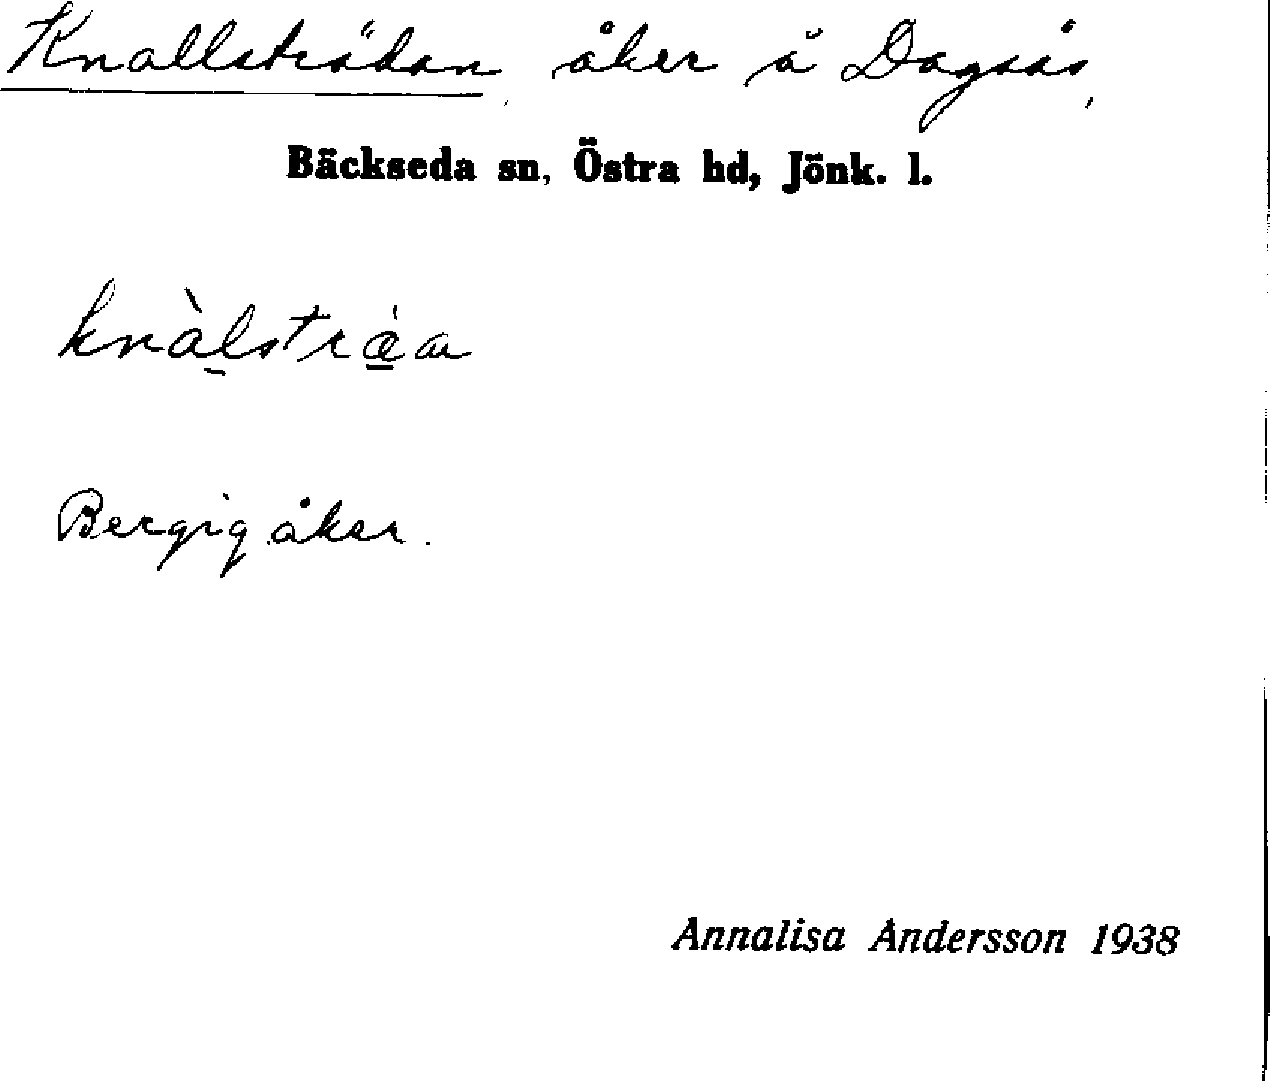 Knallsträdan, åker å Dagsås,
Bäckseda sn, Östra hd, Jönk. l.
Bergig åker.
Annalisa Andersson 1938